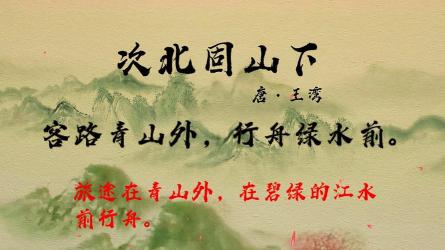 次北固山下
唐·王湾
客路青山外，行舟绿水前。
旅途在青山外，在碧绿的江水
前行舟。